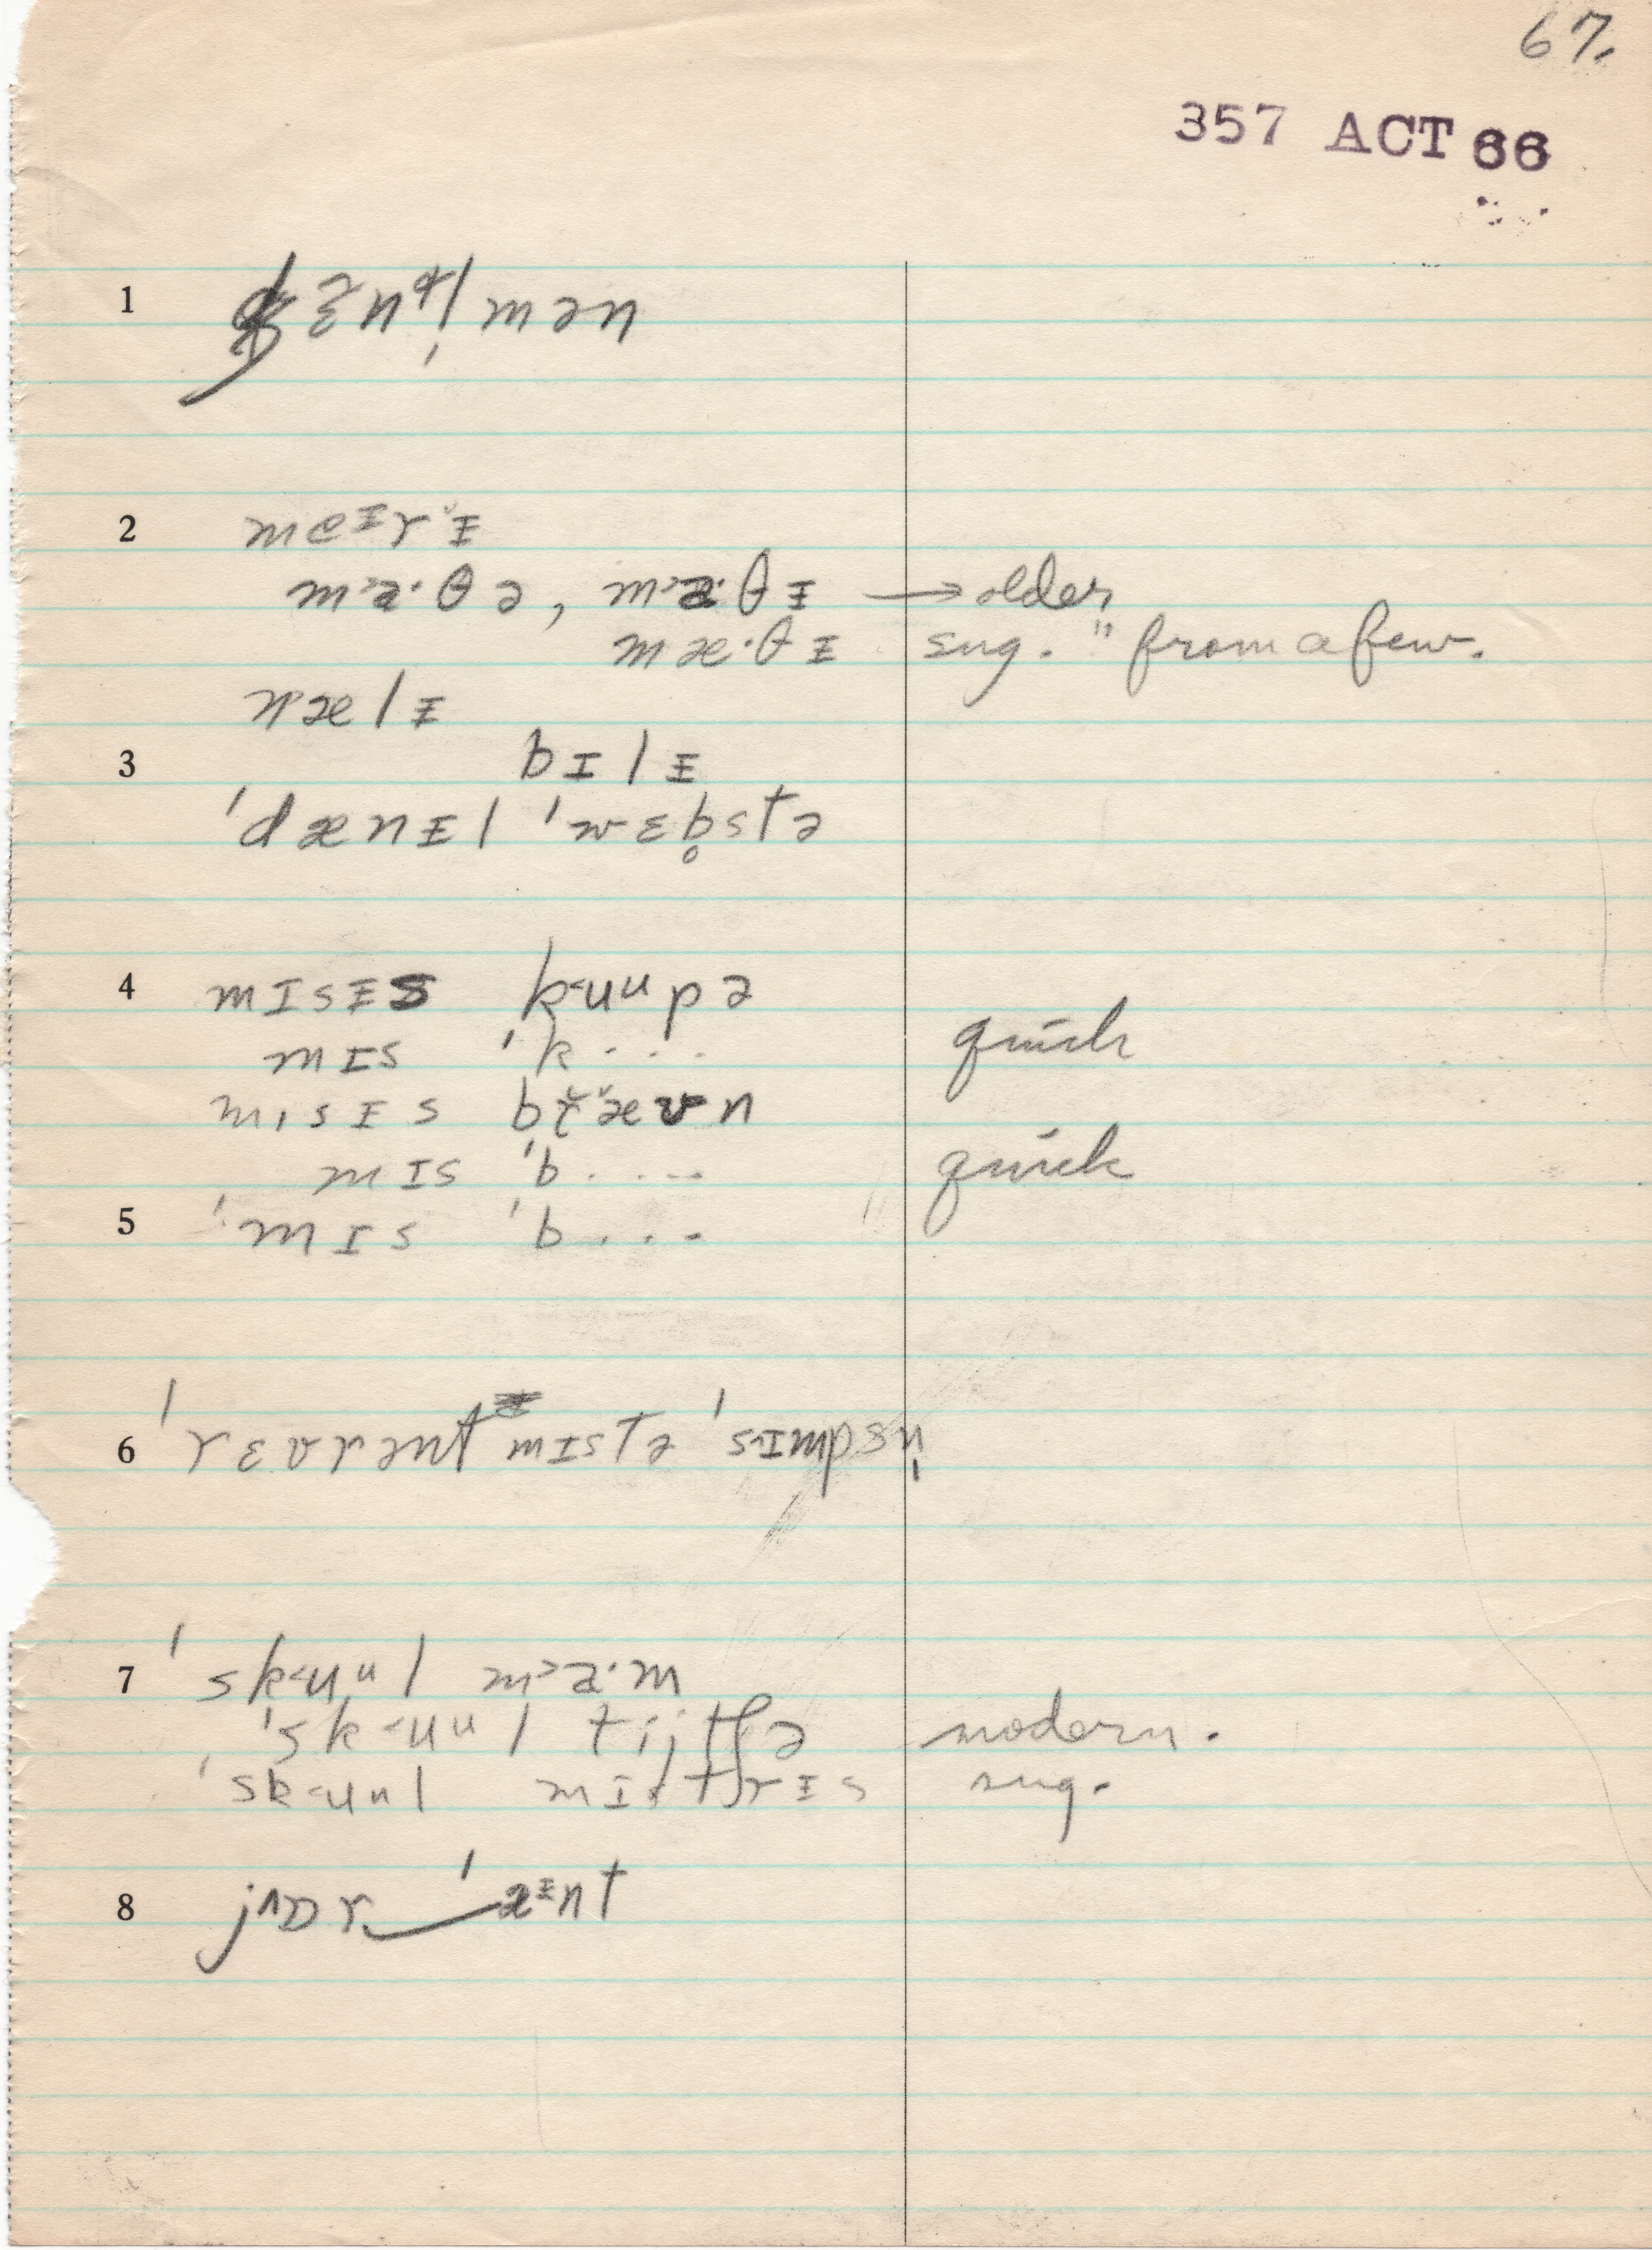 67.
357 ACT 66
1 ʤɛᵊnᵗl̩mən
2 meᶦrᵻ
ma·θə, ma·θᵻ → older
mæ·θᵻ sug. " from a few.
nælᵻ
3 bɪlᵻ
'dænᵻl 'wɛb̥stə
4 mɪsᵻs k<uᵘpə
mɪs 'k... quick
mɪsᵻs bræʊn
mɪs 'b.... quick
5 'mɪs 'b...
6 'rɛvrənt mɪstə 'sɪmpsn̩
7 'sk<uᵘl ma·m
'sk<uᵘl tijtʃə modern.
'sk<uᵘl mɪstrᵻs sug.
8 jɒr‿'æᵻnt